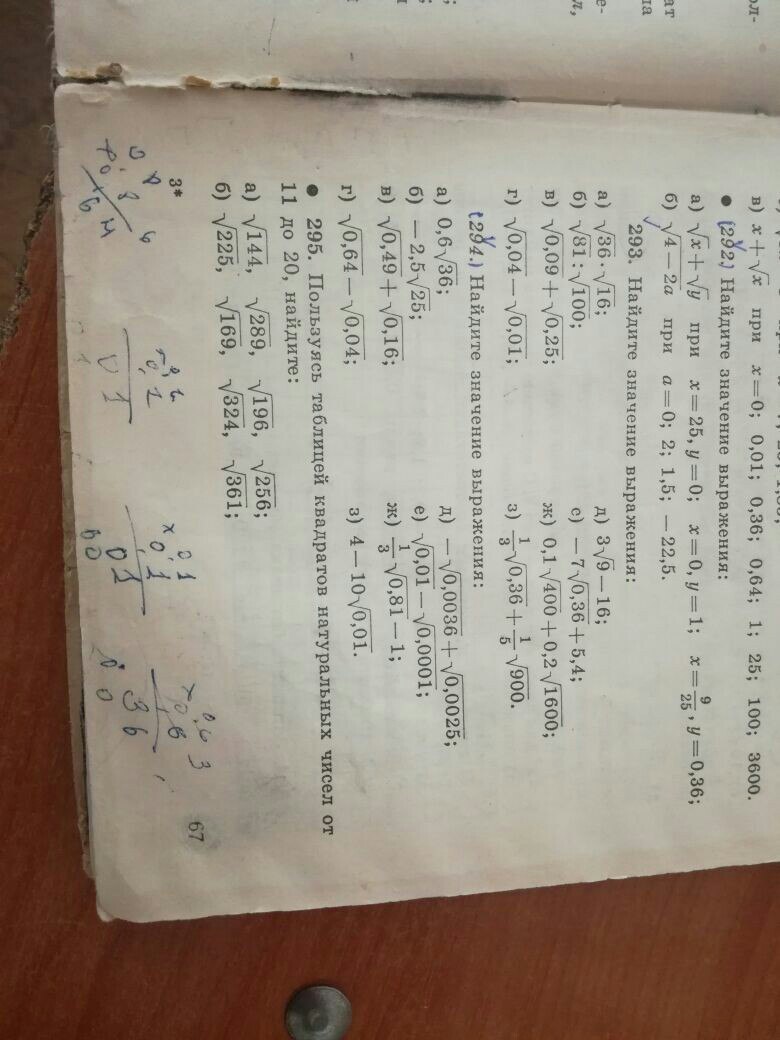 в) x+√x при x=0; 0,01; 0,36; 0,64; 1; 25; 100; 3600.
• 292. Найдите значение выражения:
а) √x+√y при x=25, y=0; x=0, y=1; x=9/25, y=0,36;
б) √(4−2a) при a=0; 2; 1,5; −22,5.
293. Найдите значение выражения:
а) √36·√16; д) 3√9−16;
б) √81:√100; е) −7√0,36+5,4;
в) √0,09+√0,25; ж) 0,1√400+0,2√1600;
г) √0,04−√0,01; з) 1/3√0,36+1/5√900.
294. Найдите значение выражения:
а) 0,6√36; д) −√0,0036+√0,0025;
б) −2,5√25; е) √0,01−√0,0001;
в) √0,49+√0,16; ж) 1/3√0,81−1;
г) √0,64−√0,04; з) 4−10√0,01.
• 295. Пользуясь таблицей квадратов натуральных чисел от
11 до 20, найдите:
а) √144, √289, √196, √256;
б) √225, √169, √324, √361;
3*
67